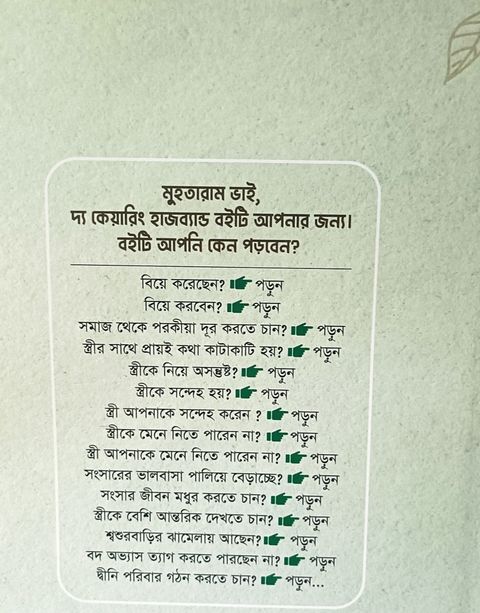 মুহতারাম ভাই,
দ্য কেয়ারিং হাজব্যান্ড বইটি আপনার জন্য।
বইটি আপনি কেন পড়বেন?
বিয়ে করেছেন? পড়ুন
বিয়ে করবেন? পড়ুন
সমাজ থেকে পরকীয়া দূর করতে চান? পড়ুন
স্ত্রীর সাথে প্রায়ই কথা কাটাকাটি হয়? পড়ুন
স্ত্রীকে নিয়ে অসন্তুষ্ট? পড়ুন
স্ত্রীকে সন্দেহ হয়? পড়ুন
স্ত্রী আপনাকে সন্দেহ করেন ? পড়ুন
স্ত্রীকে মেনে নিতে পারেন না? পড়ুন
স্ত্রী আপনাকে মেনে নিতে পারেন না? পড়ুন
সংসারের ভালবাসা পালিয়ে বেড়াচ্ছে? পড়ুন
সংসার জীবন মধুর করতে চান? পড়ুন
স্ত্রীকে বেশি আন্তরিক দেখতে চান? পড়ুন
শ্বশুরবাড়ির ঝামেলায় আছেন? পড়ুন
বদ অভ্যাস ত্যাগ করতে পারছেন না? পড়ুন
দ্বীনি পরিবার গঠন করতে চান? পড়ুন...